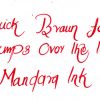 uck Braun Fo
umps Over the l
Mandara Ink